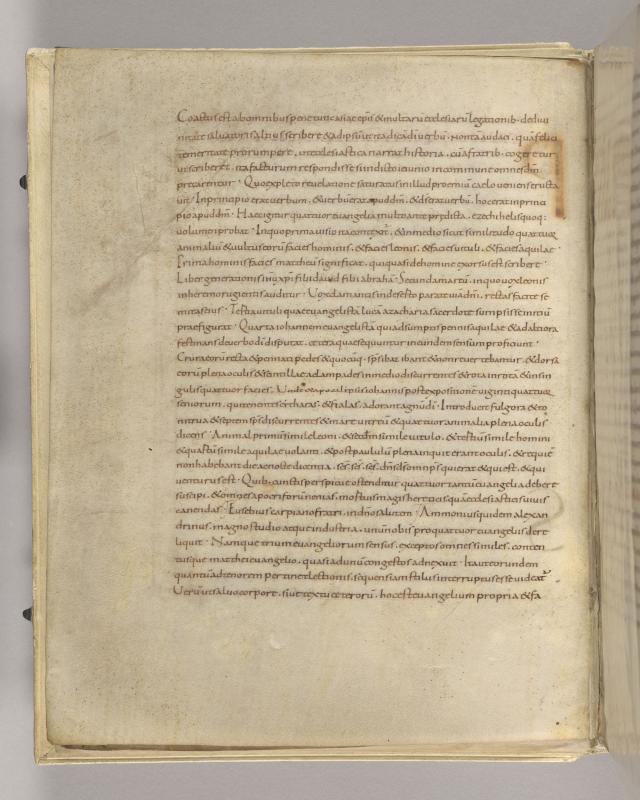 Coactus est abomnibus pene tunc asiae epis & multarū ecclesiarū legationib· dedivi
nitate salvatoris altius scribere & ad ipsū ut ita dicā dī verbū· non tā audaci, quā felici
temeritate prorumpere, ut ecclesiastica narrat historia, cū afratrib· cogeretur
ut scriberet, ita facturum respondisse si indicto ieiunio incommune omnes dm̄
precarentur· Quo expleto revelatione saturatus inillud proemiū caelo veniens eructa
vit· Inprincipio erat verbum, & verbū erat apud dm̄, & ds erat verbū, hoc erat inprinci
pio apud dm̄· Haec igitur quattuor euangelia multo ante predicta, ezechihelis quoq:
volumen probat· Inquo prima visio ita contex&ur, & inmedio sicut similitudo quattuor
animaliū & vultus eorū facies hominis, & facies leonis, & facies vituli, & facies aquilae·
Prima hominis facies matheū significat, qui quasi de homine exorsus est scribere
Liber generationis ihū xpi filii david filii abrahā· Secunda marcū, inquo vox leonis
inheremo rugientis auditur· Vox clamantis indeserto parate viā dnī, rectas facite se
mitas eius· Tertia vituli quae euangelistā lucā azacharia sacerdote sumpsisse initiū
praefigurat· Quarta iohannem euangelistā qui adsumptis pennis aquilae & ad altiora
festinans de verbo dī disputat, cetera quae sequuntur ineundem sensum proficiunt·
Crura eorū recta & pennati pedes & quocūq· sps ibat ibant & non revertebantur, & dorsa
eorū plena oculis & scintillae ac lampades inmedio discurrentes & rota inrota & insin
gulis quattuor facies· Unde & apocalipsis iohannis post expositionē viginti quattuor
seniorum, qui tenentes cytharas, & fialas, adorant agnū dī· Introducit fulgora & to
nitrua & septem sps discurrentes & mare vitreū & quattuor animalia plena oculis
dicens· Animal primū simile leoni, & secdm simile vitulo, & tertiū simile homini
& quartū simile aquilae volanti, & post paululū plena inquit erant oculis, & requiē
non habebant die ac nocte dicentia, scs̄, scs̄, scs̄, dns̄ ds̄ omnps qui erat & qui est, & qui
venturus est· Quib; cunctis perspicue ostenditur quattuor tantū euangelia debere
suscipi, & omnes apocriforū nenias, mortuis magis hereticis quā ecclesiasticis vivis
canendas· Eusebius carpiano fratri, indnō salutem· Ammonius quidem alexan
drinus, magno studio atque industria, unum nobis pro quattuor euangeliis dere
liquit· Namque trium euangeliorum sensus, exceptos omnes similes, conten
tusque matthei euangelio, quasi ad unū congestos adnexuit· Ita ut eorundem
quantū ad tenorem pertinet lectionis, sequens iam stilus interruptus esse videatur
Verū ut salvo corpore, sive textu ceterorū, hoc est euangelium propria & fa